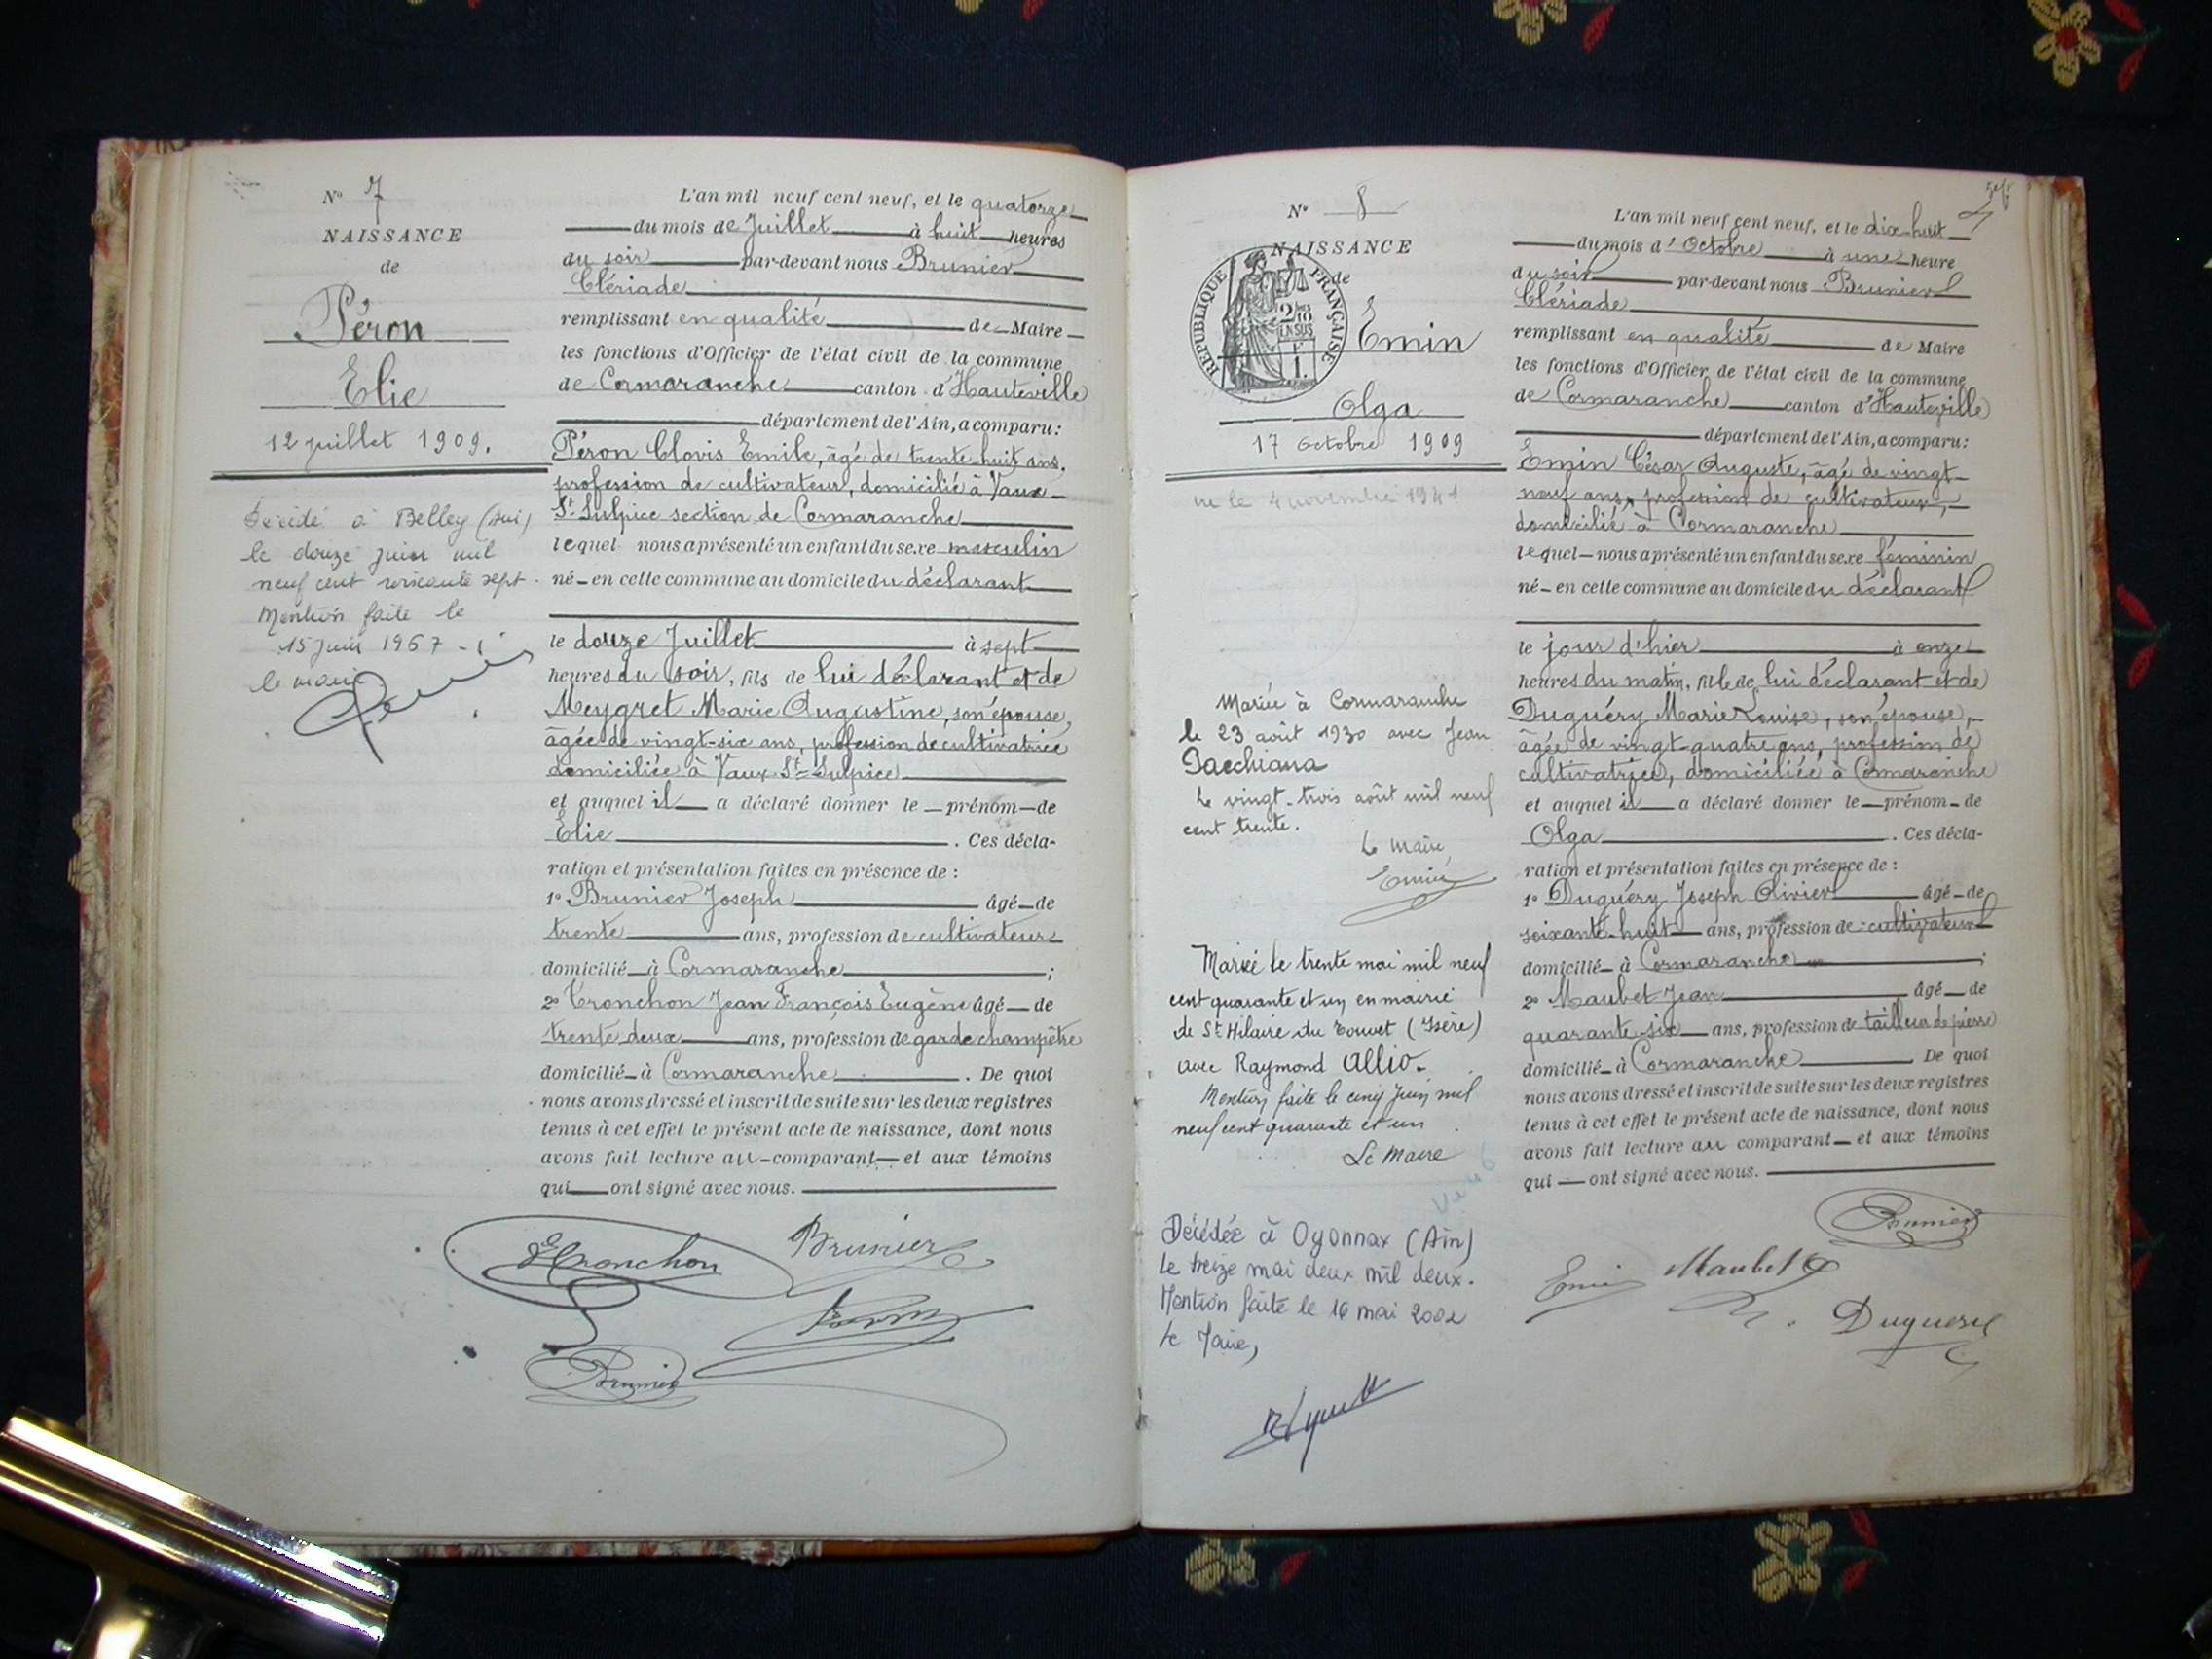 N° 7
NAISSANCE
de
Péron
Elie
12 juillet 1909.
Décédé à Belley (Ain)
le douze juin mil
neuf cent soixante sept.
Mention faite le
15 juin 1967 -
le maire
L'an mil neuf cent neuf, et le quatorze
du mois de Juillet à huit heures
du soir par-devant nous Brunier
Clériade
remplissant en qualité de Maire
les fonctions d'Officier de l'état civil de la commune
de Cormaranche canton d'Hauteville
département de l'Ain, a comparu:
Péron Clovis Emile, âgé de trente-huit ans,
profession de cultivateur, domicilié à Vaux
St Sulpice section de Cormaranche
lequel nous a présenté un enfant du sexe masculin
né - en cette commune au domicile du déclarant
le douze Juillet à sept
heures du soir, fils de lui déclarant et de
Meygret Marie Augustine, son épouse,
âgée de vingt-six ans, profession de cultivatrice
domiciliée à Vaux St-Sulpice
et auquel il a déclaré donner le prénom de
Elie . Ces décla-
ration et présentation faites en présence de :
1° Brunier Joseph âgé de
trente ans, profession de cultivateur
domicilié à Cormaranche ;
2° Tronchon Jean François Eugène âgé de
trente deux ans, profession de garde champêtre
domicilié à Cormaranche . De quoi
nous avons dressé et inscrit de suite sur les deux registres
tenus à cet effet le présent acte de naissance, dont nous
avons fait lecture au comparant et aux témoins
qui ont signé avec nous.
ETronchon Brunier
Péron
Brunier
N° 8
NAISSANCE
de
REPUBLIQUE FRANÇAISE
2/10
EN SUS
1.
Emin
Olga
17 Octobre 1909
le 4 novembre 1941
Mariée à Cormaranche
le 23 août 1930 avec Jean
Pacchiana
Le vingt-trois août mil neuf
cent trente.
Le Maire
Emin
Mariée le trente mai mil neuf
cent quarante et un en mairie
de St Hilaire du Touvet (Isère)
avec Raymond Allio.
Mention faite le cinq Juin mil
neuf cent quarante et un
Le Maire
Décédée à Oyonnax (Ain)
le treize mai deux mil deux.
Mention faite le 16 mai 2002
Le Maire,
L'an mil neuf cent neuf, et le dix-huit
du mois d'Octobre à une heure
du soir par-devant nous Brunier
Clériade
remplissant en qualité de Maire
les fonctions d'Officier de l'état civil de la commune
de Cormaranche canton d'Hauteville
département de l'Ain, a comparu:
Emin César Auguste, âgé de vingt-
neuf ans, profession de cultivateur,
domicilié à Cormaranche
lequel nous a présenté un enfant du sexe féminin
né - en cette commune au domicile du déclarant
le jour d'hier à onze
heures du matin, fille de lui déclarant et de
Duguéry Marie Louise, son épouse,
âgée de vingt-quatre ans, profession de
cultivatrice, domiciliée à Cormaranche
et auquel il a déclaré donner le prénom de
Olga . Ces décla-
ration et présentation faites en présence de :
1° Duguéry Joseph Olivier âgé de
soixante-huit ans, profession de cultivateur
domicilié à Cormaranche ;
2° Maubet Jean âgé de
quarante-six ans, profession de tailleur de pierre
domicilié à Cormaranche . De quoi
nous avons dressé et inscrit de suite sur les deux registres
tenus à cet effet le présent acte de naissance, dont nous
avons fait lecture au comparant et aux témoins
qui ont signé avec nous.
Brunier
Emin Maubet
Duguery